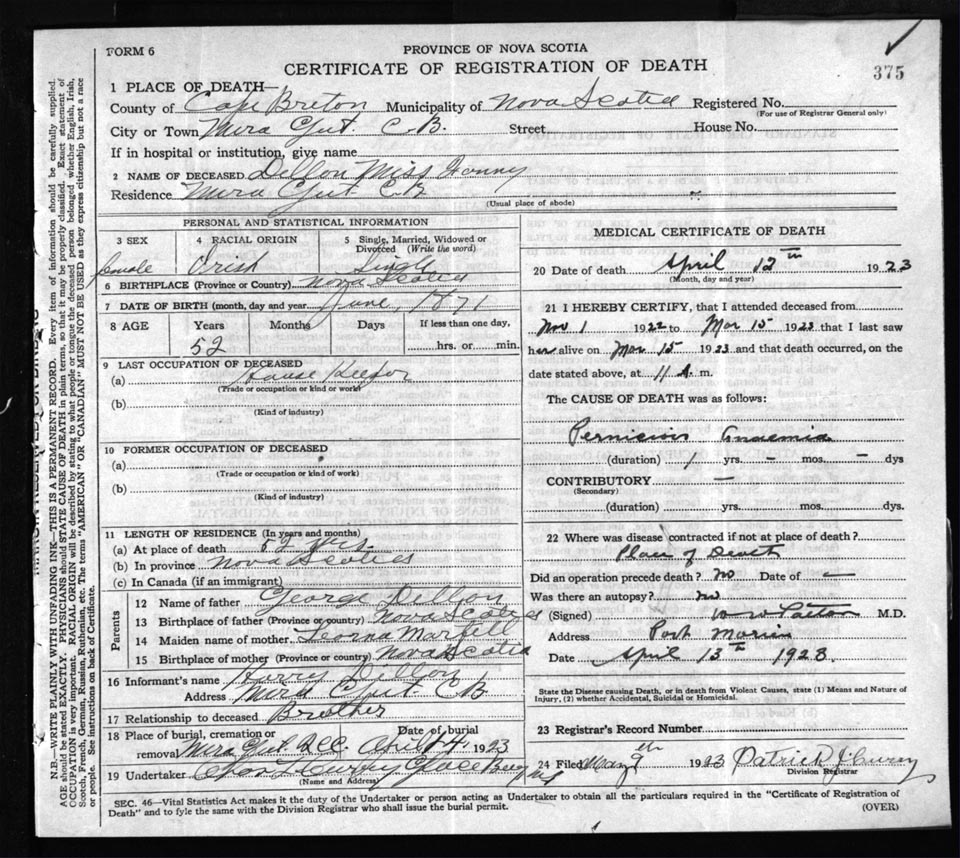 FORM 6
PROVINCE OF NOVA SCOTIA
CERTIFICATE OF REGISTRATION OF DEATH
375
1 PLACE OF DEATH—
County of Cape Breton Municipality of Nova Scotia Registered No.
(For use of Registrar General only)
City or Town Mira Gut. C.B. Street House No.
If in hospital or institution, give name
2 NAME OF DECEASED Dillon Miss Fanny
Residence Mira Gut C B
(Usual place of abode)
PERSONAL AND STATISTICAL INFORMATION
3 SEX
female
4 RACIAL ORIGIN
Irish
5 Single, Married, Widowed or Divorced (Write the word)
Single
6 BIRTHPLACE (Province or Country) Nova Scotia
7 DATE OF BIRTH (month, day and year) June, 1871
8 AGE Years Months Days If less than one day,
52 hrs. or min.
9 LAST OCCUPATION OF DECEASED
(a) House Keeper
(Trade or occupation or kind or work)
(b)
(Kind of industry)
10 FORMER OCCUPATION OF DECEASED
(a)
(Trade or occupation or kind of work)
(b)
(Kind of industry)
11 LENGTH OF RESIDENCE (In years and months)
(a) At place of death 52 yrs.
(b) In province Nova Scotia
(c) In Canada (if an immigrant)
Parents
12 Name of father George Dillon
13 Birthplace of father (Province or country) Nova Scotia
14 Maiden name of mother
15 Birthplace of mother (Province or country) Nova Scotia
16 Informant's name Harry Dillon
Address Mira Gut C B
17 Relationship to deceased Brother
18 Place of burial, cremation or Date of burial
removal Mira Gut April 14, 1923
19 Undertaker Curry Glace Bay NS
(Name and Address)
MEDICAL CERTIFICATE OF DEATH
20 Date of death April 12th 1923
(Month, day and year)
21 I HEREBY CERTIFY, that I attended deceased from
Nov 1 1922 to Mar 15 1923 that I last saw
her alive on Mar 15 1923 and that death occurred, on the
date stated above, at 11 A. m.
The CAUSE OF DEATH was as follows:
Pernicious Anaemia
(duration) 1 yrs. — mos. — dys
CONTRIBUTORY —
(Secondary)
(duration) yrs. mos. dys.
22 Where was disease contracted if not at place of death?
Place of Death
Did an operation precede death? no Date of —
Was there an autopsy? no
(Signed) M.D.
Address Port Morien
Date April 13th 1923.
State the Disease causing Death, or in death from Violent Causes, state (1) Means and Nature of
Injury, (2) whether Accidental, Suicidal or Homicidal.
23 Registrar's Record Number
24 Filed May 9th 1923 Patrick J Curry
Division Registrar
SEC. 46—Vital Statistics Act makes it the duty of the Undertaker or person acting as Undertaker to obtain all the particulars required in the "Certificate of Registration of
Death" and to fyle the same with the Division Registrar who shall issue the burial permit.
(OVER)
N.B.—WRITE PLAINLY WITH UNFADING INK—THIS IS A PERMANENT RECORD. Every item of information should be carefully supplied.
AGE should be stated EXACTLY. PHYSICIANS should STATE CAUSE OF DEATH in plain terms, so that it may be properly classified. Exact statement of
OCCUPATION is very important. RACIAL ORIGIN will be described by stating to what people or tongue the deceased person belonged whether English, Irish,
Scotch, French, German, Russian, Ruthenian, etc. The terms "AMERICAN" or "CANADIAN" MUST NOT BE USED as they express citizenship but not a race
or people. See instructions on back of Certificate.